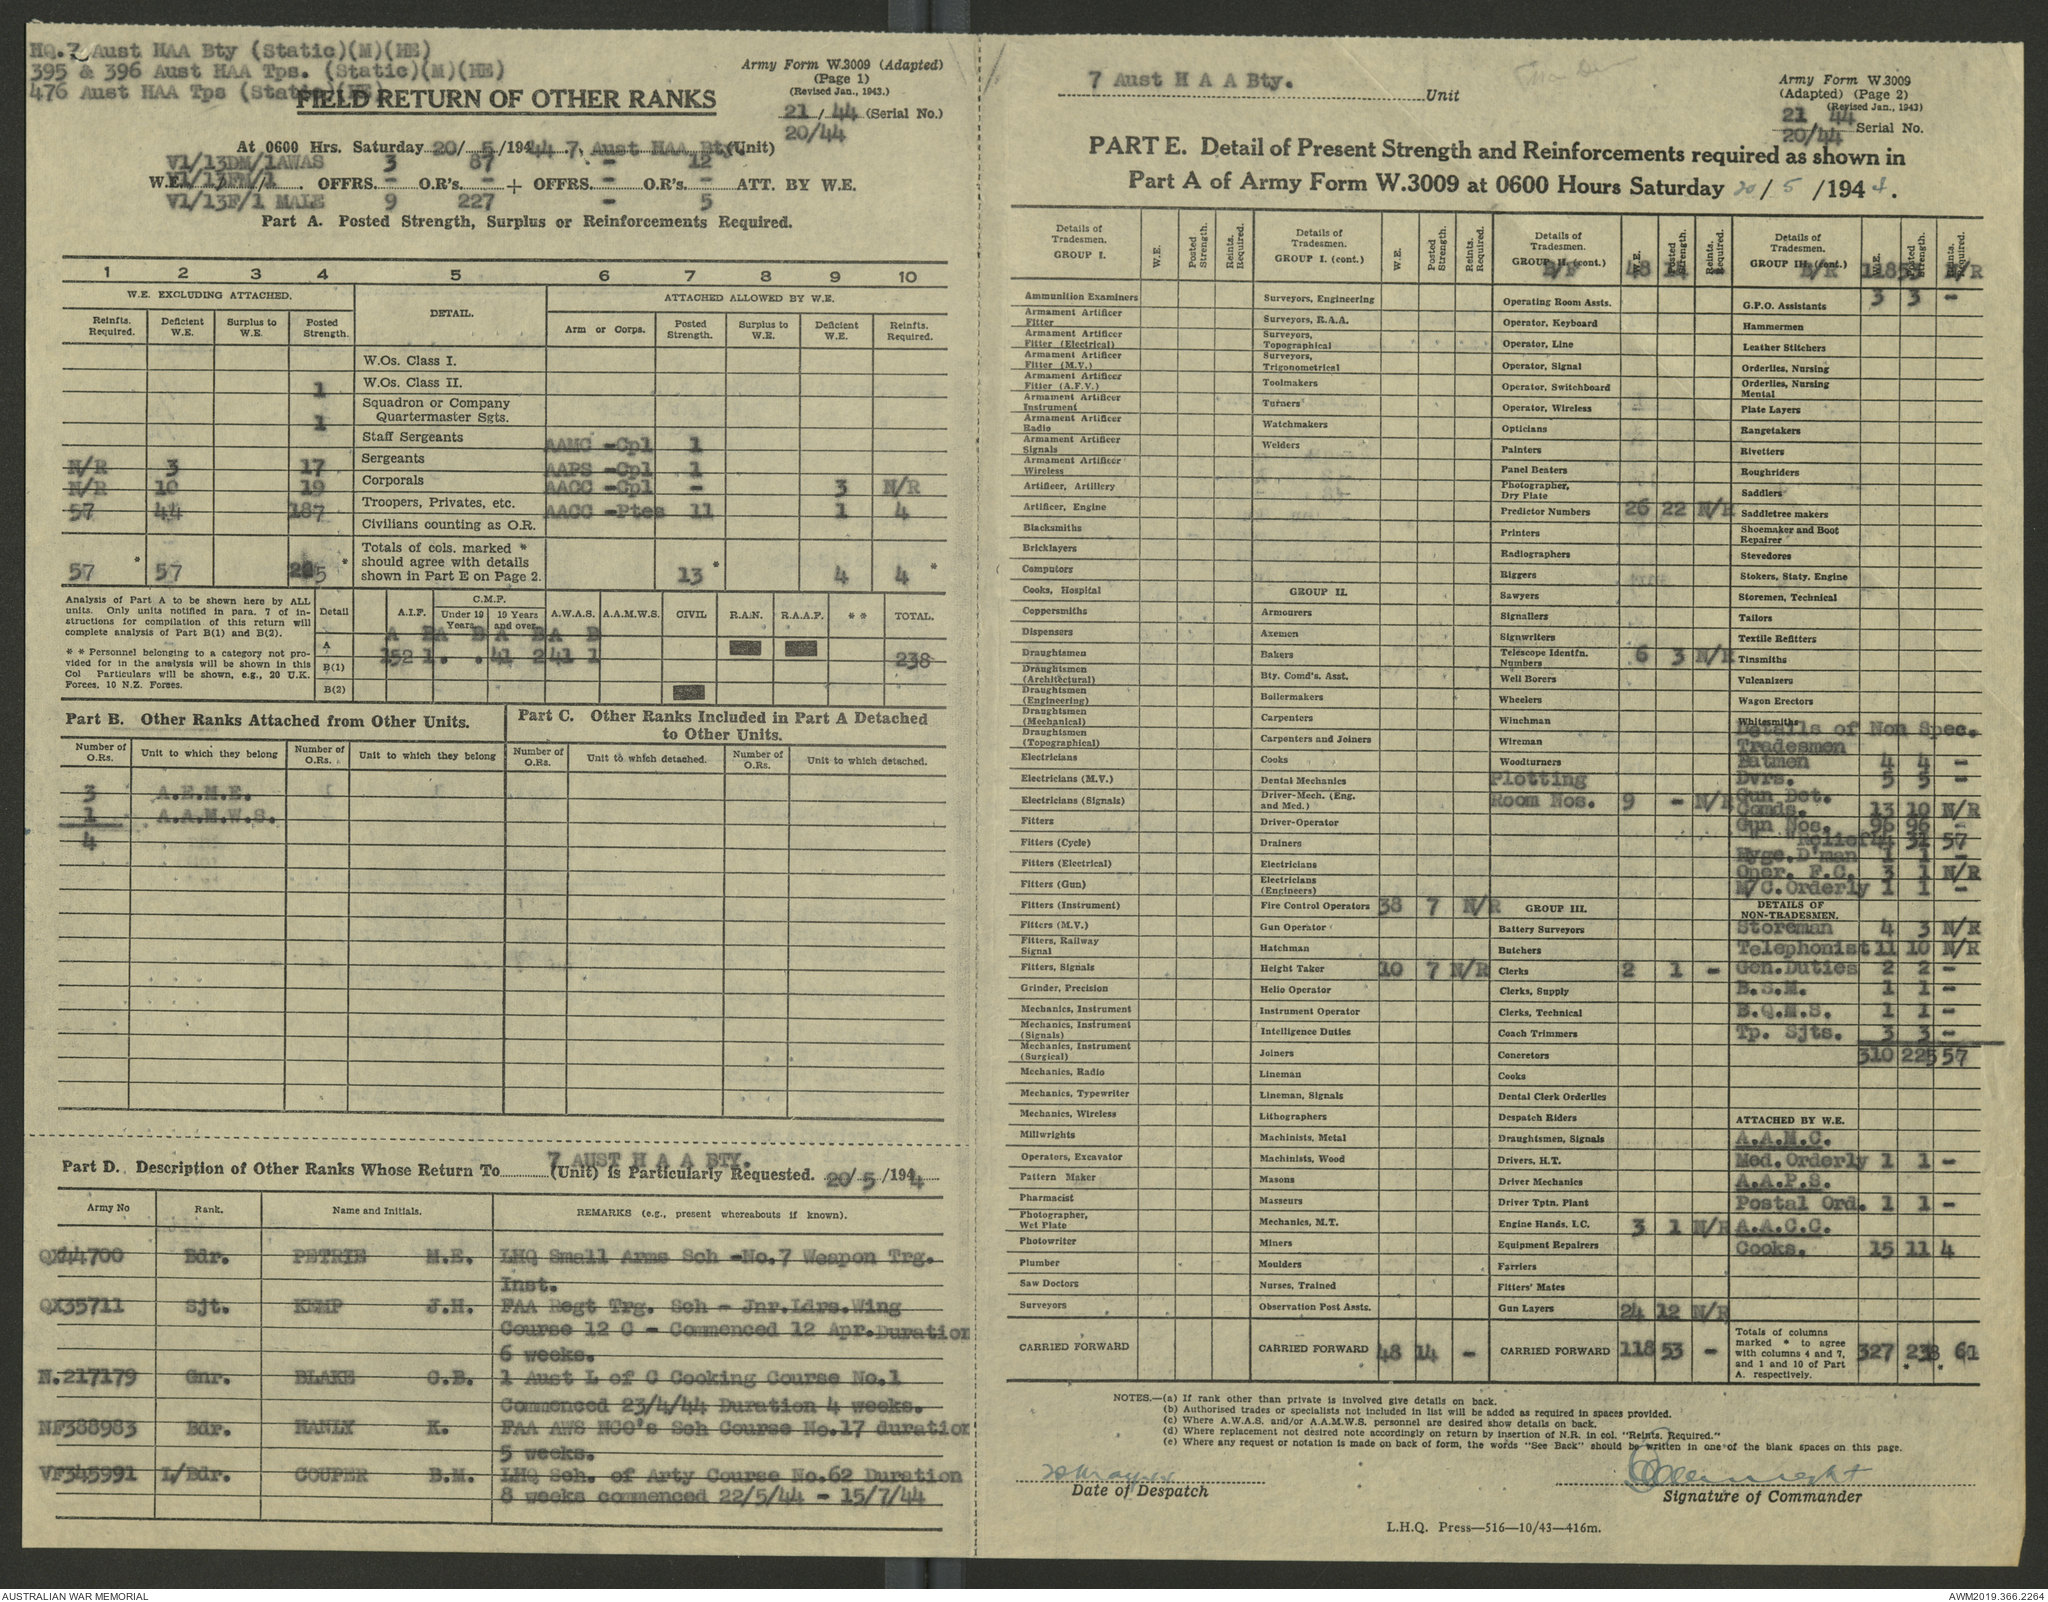 HQ.7 Aust HAA Bty (Static)(M)(HE)
395 & 396 Aust HAA Tps. (Static)(M)(HE)
476 Aust HAA Tps (Static)(HE)
Army Form W.3009 (Adapted)
(Page 1)
(Revised Jan., 1943.)
FIELD RETURN OF OTHER RANKS
21 / 44 (Serial No.)
20/44
At 0600 Hrs. Saturday 20/ 5 /1944 7. Aust HAA Bty (Unit)
V1/13DM/1AWAS 3 87 - 12
W.E. V1/13FM/1 OFFRS. - O.R's. - + OFFRS. - O.R's. - ATT. BY W.E.
V1/13F/1 MALE 9 227 - 5
Part A. Posted Strength, Surplus or Reinforcements Required.
1 2 3 4 5 6 7 8 9 10
W.E. EXCLUDING ATTACHED. DETAIL. ATTACHED ALLOWED BY W.E.
Reinfts. Required. Deficient W.E. Surplus to W.E. Posted Strength. Arm or Corps. Posted Strength. Surplus to W.E. Deficient W.E. Reinfts. Required.
W.Os. Class I.
1 W.Os. Class II.
1 Squadron or Company Quartermaster Sgts.
Staff Sergeants AAMC -Cpl 1
N/R 3 17 Sergeants AAPS -Cpl 1
N/R 10 19 Corporals AACC -Cpl - 3 N/R
57 44 187 Troopers, Privates, etc. AACC -Ptes 11 1 4
Civilians counting as O.R.
57 * 57 225 * Totals of cols. marked * should agree with details shown in Part E on Page 2. 13 * 4 4 *
Analysis of Part A to be shown here by ALL units. Only units notified in para. 7 of instructions for compilation of this return will complete analysis of Part B(1) and B(2).
* * Personnel belonging to a category not provided for in the analysis will be shown in this Col Particulars will be shown, e.g., 20 U.K. Forces, 10 N.Z. Forces.
Detail A.I.F. C.M.F. Under 19 Years. 19 Years and over. A.W.A.S. A.A.M.W.S. CIVIL R.A.N. R.A.A.F. * * TOTAL.
A A B A B A B A B
B(1) 152 1 . . 41 2 41 1 238
B(2)
Part B. Other Ranks Attached from Other Units.
Number of O.Rs. Unit to which they belong Number of O.Rs. Unit to which they belong
3 A.E.M.E.
1 A.A.M.W.S.
4
Part C. Other Ranks Included in Part A Detached to Other Units.
Number of O.Rs. Unit to which detached. Number of O.Rs. Unit to which detached.
Part D. Description of Other Ranks Whose Return To 7 AUST H A A BTY. (Unit) is Particularly Requested. 20/ 5 /1944
Army No Rank. Name and Initials. REMARKS (e.g., present whereabouts if known).
QX44700 Bdr. PETRIE M.E. LHQ Small Arms Sch -No.7 Weapon Trg.
Inst.
QX35711 Sjt. KEMP J.H. FAA Regt Trg. Sch - Jnr.Ldrs.Wing
Course 12 C - Commenced 12 Apr.Duration
6 weeks.
N.217179 Gnr. BLAKE C.B. 1 Aust L of C Cooking Course No.1
Commenced 23/4/44 Duration 4 weeks.
NF388983 Bdr. HANLY K. FAA AWS NCO's Sch Course No.17 duration
5 weeks.
VF345991 L/Bdr. COUPER B.M. LHQ Sch. of Arty Course No.62 Duration
8 weeks commenced 22/5/44 - 15/7/44
7 Aust H A A Bty. Unit
Army Form W.3009
(Adapted) (Page 2)
(Revised Jan., 1943)
21 44
20/44 Serial No.
PART E. Detail of Present Strength and Reinforcements required as shown in
Part A of Army Form W.3009 at 0600 Hours Saturday 20 / 5 /1944.
Details of Tradesmen. GROUP I. W.E. Posted Strength. Reints. Required.
Ammunition Examiners
Armament Artificer Fitter
Armament Artificer Fitter (Electrical)
Armament Artificer Fitter (M.V.)
Armament Artificer Fitter (A.F.V.)
Armament Artificer Instrument
Armament Artificer Radio
Armament Artificer Signals
Armament Artificer Wireless
Artificer, Artillery
Artificer, Engine
Blacksmiths
Bricklayers
Computors
Cooks, Hospital
Coppersmiths
Dispensers
Draughtsmen
Draughtsmen (Architectural)
Draughtsmen (Engineering)
Draughtsmen (Mechanical)
Draughtsmen (Topographical)
Electricians
Electricians (M.V.)
Electricians (Signals)
Fitters
Fitters (Cycle)
Fitters (Electrical)
Fitters (Gun)
Fitters (Instrument)
Fitters (M.V.)
Fitters, Railway Signal
Fitters, Signals
Grinder, Precision
Mechanics, Instrument
Mechanics, Instrument (Signals)
Mechanics, Instrument (Surgical)
Mechanics, Radio
Mechanics, Typewriter
Mechanics, Wireless
Millwrights
Operators, Excavator
Pattern Maker
Pharmacist
Photographer, Wet Plate
Photowriter
Plumber
Saw Doctors
Surveyors
CARRIED FORWARD
Details of Tradesmen. GROUP I. (cont.) W.E. Posted Strength. Reints. Required.
Surveyors, Engineering
Surveyors, R.A.A.
Surveyors, Topographical
Surveyors, Trigonometrical
Toolmakers
Turners
Watchmakers
Welders
GROUP II.
Armourers
Axemen
Bakers
Bty. Comd's. Asst.
Boilermakers
Carpenters
Carpenters and Joiners
Cooks
Dental Mechanics
Driver-Mech. (Eng. and Med.)
Driver-Operator
Drainers
Electricians
Electricians (Engineers)
Fire Control Operators 38 7 N/R
Gun Operator
Hatchman
Height Taker 10 7 N/R
Helio Operator
Instrument Operator
Intelligence Duties
Joiners
Lineman
Lineman, Signals
Lithographers
Machinists, Metal
Machinists, Wood
Masons
Masseurs
Mechanics, M.T.
Miners
Moulders
Nurses, Trained
Observation Post Assts.
CARRIED FORWARD 48 14 -
Details of Tradesmen. GROUP II. (cont.) W.E. Posted Strength. Reints. Required.
B/F 48 14
Operating Room Assts.
Operator, Keyboard
Operator, Line
Operator, Signal
Operator, Switchboard
Operator, Wireless
Opticians
Painters
Panel Beaters
Photographer, Dry Plate
Predictor Numbers 26 22 N/R
Printers
Radiographers
Riggers
Sawyers
Signallers
Signwriters
Telescope Identfn. Numbers 6 3 N/R
Well Borers
Wheelers
Winchman
Wireman
Woodturners
Plotting
Room Nos. 9 - N/R
GROUP III.
Battery Surveyors
Butchers
Clerks 2 1 -
Clerks, Supply
Clerks, Technical
Coach Trimmers
Concretors
Cooks
Dental Clerk Orderlies
Despatch Riders
Draughtsmen, Signals
Drivers, H.T.
Driver Mechanics
Driver Tptn. Plant
Engine Hands, I.C. 3 1 N/R
Equipment Repairers
Farriers
Fitters' Mates
Gun Layers 24 12 N/R
CARRIED FORWARD 118 53 -
Details of Tradesmen. GROUP III. (cont.) W.E. Posted Strength. Reints. Required.
B/R 118 53 N/R
G.P.O. Assistants 3 3 -
Hammermen
Leather Stitchers
Orderlies, Nursing
Orderlies, Nursing Mental
Plate Layers
Rangetakers
Rivetters
Roughriders
Saddlers
Saddletree makers
Shoemaker and Boot Repairer
Stevedores
Stokers, Staty. Engine
Storemen, Technical
Tailors
Textile Refitters
Tinsmiths
Vulcanizers
Wagon Erectors
Whitesmiths
Details of Non Spec.
Tradesmen
Batmen 4 4 -
Dvrs. 5 5 -
Gun Det.
Comds. 13 10 N/R
Gun Nos. 96 96 -
" Relief 44 31 57
Hyge.D'man 1 1 -
Oper. F.C. 3 1 N/R
M/C.Orderly 1 1 -
DETAILS OF NON-TRADESMEN.
Storeman 4 3 N/R
Telephonist 11 10 N/R
Gen.Duties 2 2 -
B.S.M. 1 1 -
B.Q.M.S. 1 1 -
Tp. Sjts. 3 3 -
310 225 57
ATTACHED BY W.E.
A.A.M.C.
Med.Orderly 1 1 -
A.A.P.S.
Postal Ord. 1 1 -
A.A.C.C.
Cooks. 15 11 4
Totals of columns marked * to agree with columns 4 and 7, and 1 and 10 of Part A. respectively. 327 238 61
NOTES.—(a) If rank other than private is involved give details on back.
(b) Authorised trades or specialists not included in list will be added as required in spaces provided.
(c) Where A.W.A.S. and/or A.A.M.W.S. personnel are desired show details on back.
(d) Where replacement not desired note accordingly on return by insertion of N.R. in col. "Reints. Required."
(e) Where any request or notation is made on back of form, the words "See Back" should be written in one of the blank spaces on this page.
Date of Despatch
Signature of Commander
L.H.Q. Press—516—10/43—416m.
AUSTRALIAN WAR MEMORIAL
AWM2019.366.2264